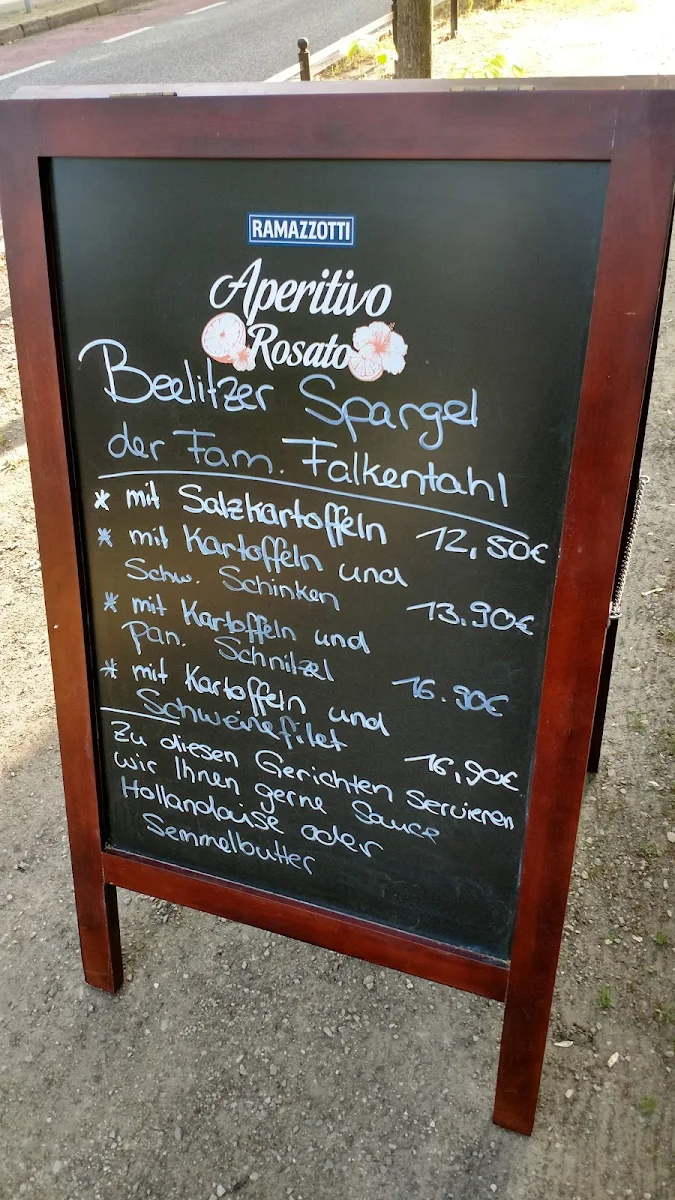 RAMAZZOTTI
Aperitivo
Rosato
Beelitzer Spargel
der Fam. Falkentahl
* mit Salzkartoffeln 12,50€
* mit Kartoffeln und
Schw. Schinken 13.90€
* mit Kartoffeln und
pan. Schnitzel 16.90€
* mit Kartoffeln und
Schweinefilet 16,90€
Zu diesen Gerichten servieren
wir Ihnen gerne Sauce
Hollandaise oder
Semmelbutter